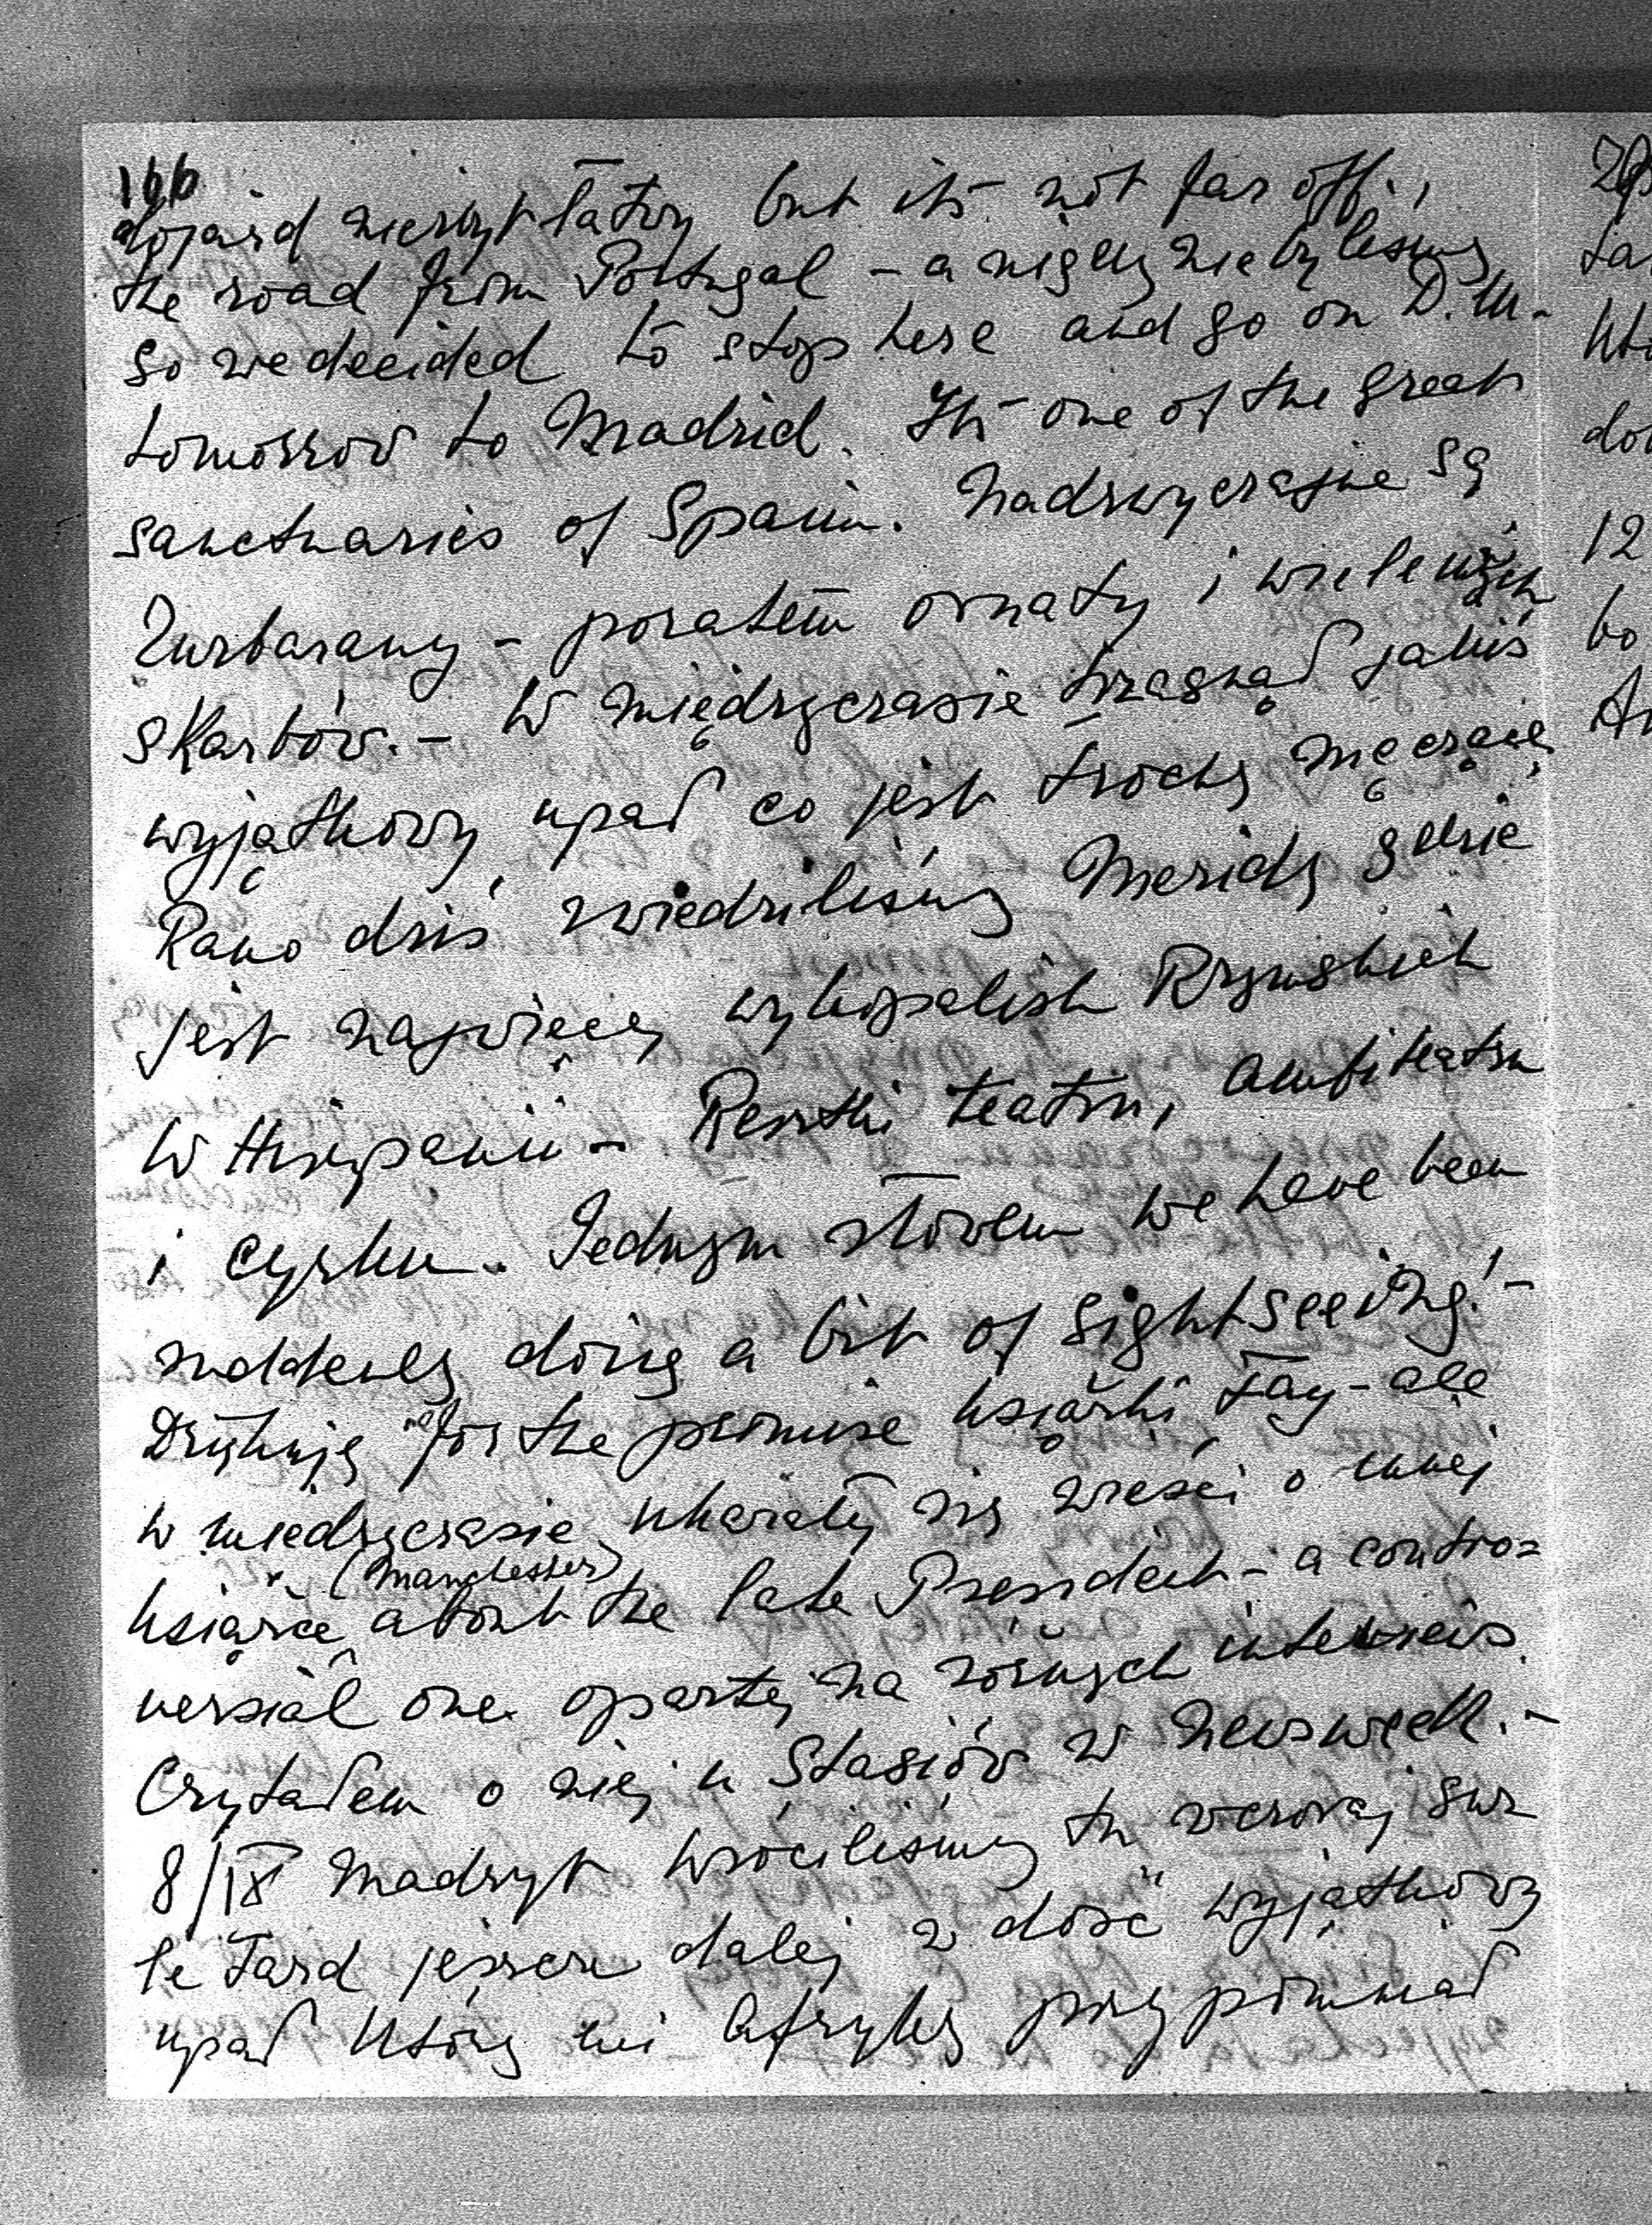 166
dojazd niezbyt łatwy but its not far off
the road from Portugal – a nigdy nie byliśmy
so we decided to stop here and go on D.M.
tomorrow to Madrid. Its one of the great
sanctuaries of Spain. Nadzwyczajne są
Zurbarany – pozatem ornaty i wiele innych
skarbów. – W międzyczasie trzasnął jakiś
wyjątkowy upał co jest trochę męczące
Rano dziś zwiedziliśmy Meridę gdzie
jest najwięcej wykopalisk Rzymskich
w Hiszpanii – Resztki teatru, amfiteatru
i cyrku. Jednym słowem we have been
suddenly doing a bit of sightseeing! –
Dziękuję for the promise książki Fay – ale
w międzyczasie ukazały się wieści o innej
(Manchester)
książce about the late President – a contro=
versial one opartej na różnych interviews.
Czytałem o niej u Stasiów w Newsweek. –
8/IX Madryt wróciliśmy tu wczoraj sur
le tard jeszcze dalej w dość wyjątkowy
upał który mi Afrykę przypominał
29
ta
do
12
bo